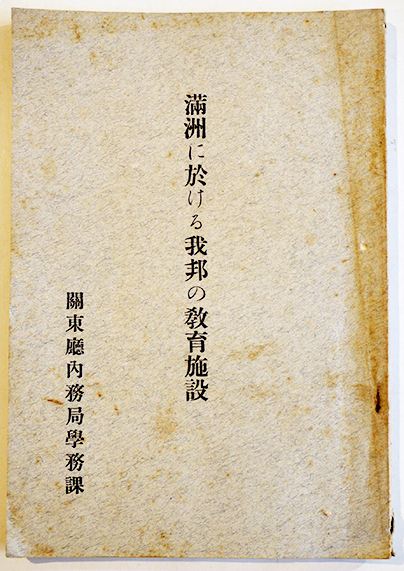 滿洲に於ける我邦の敎育施設
關東廳內務局學務課